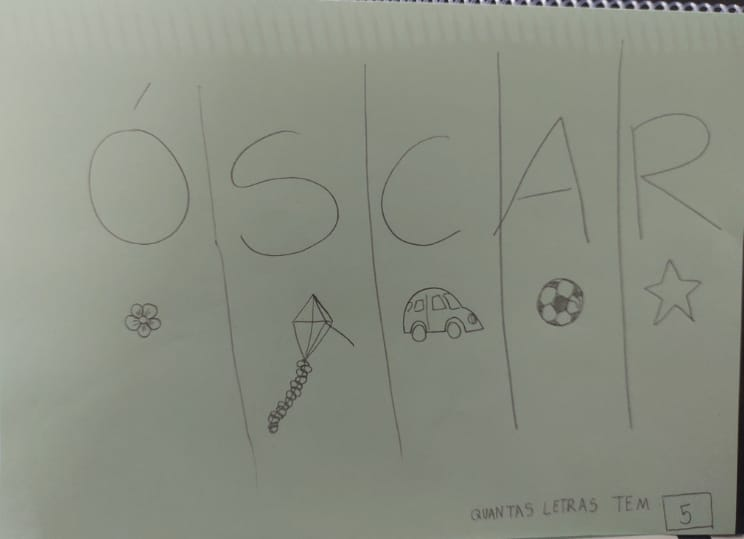 ÓSCAR
QUANTAS LETRAS TEM 5